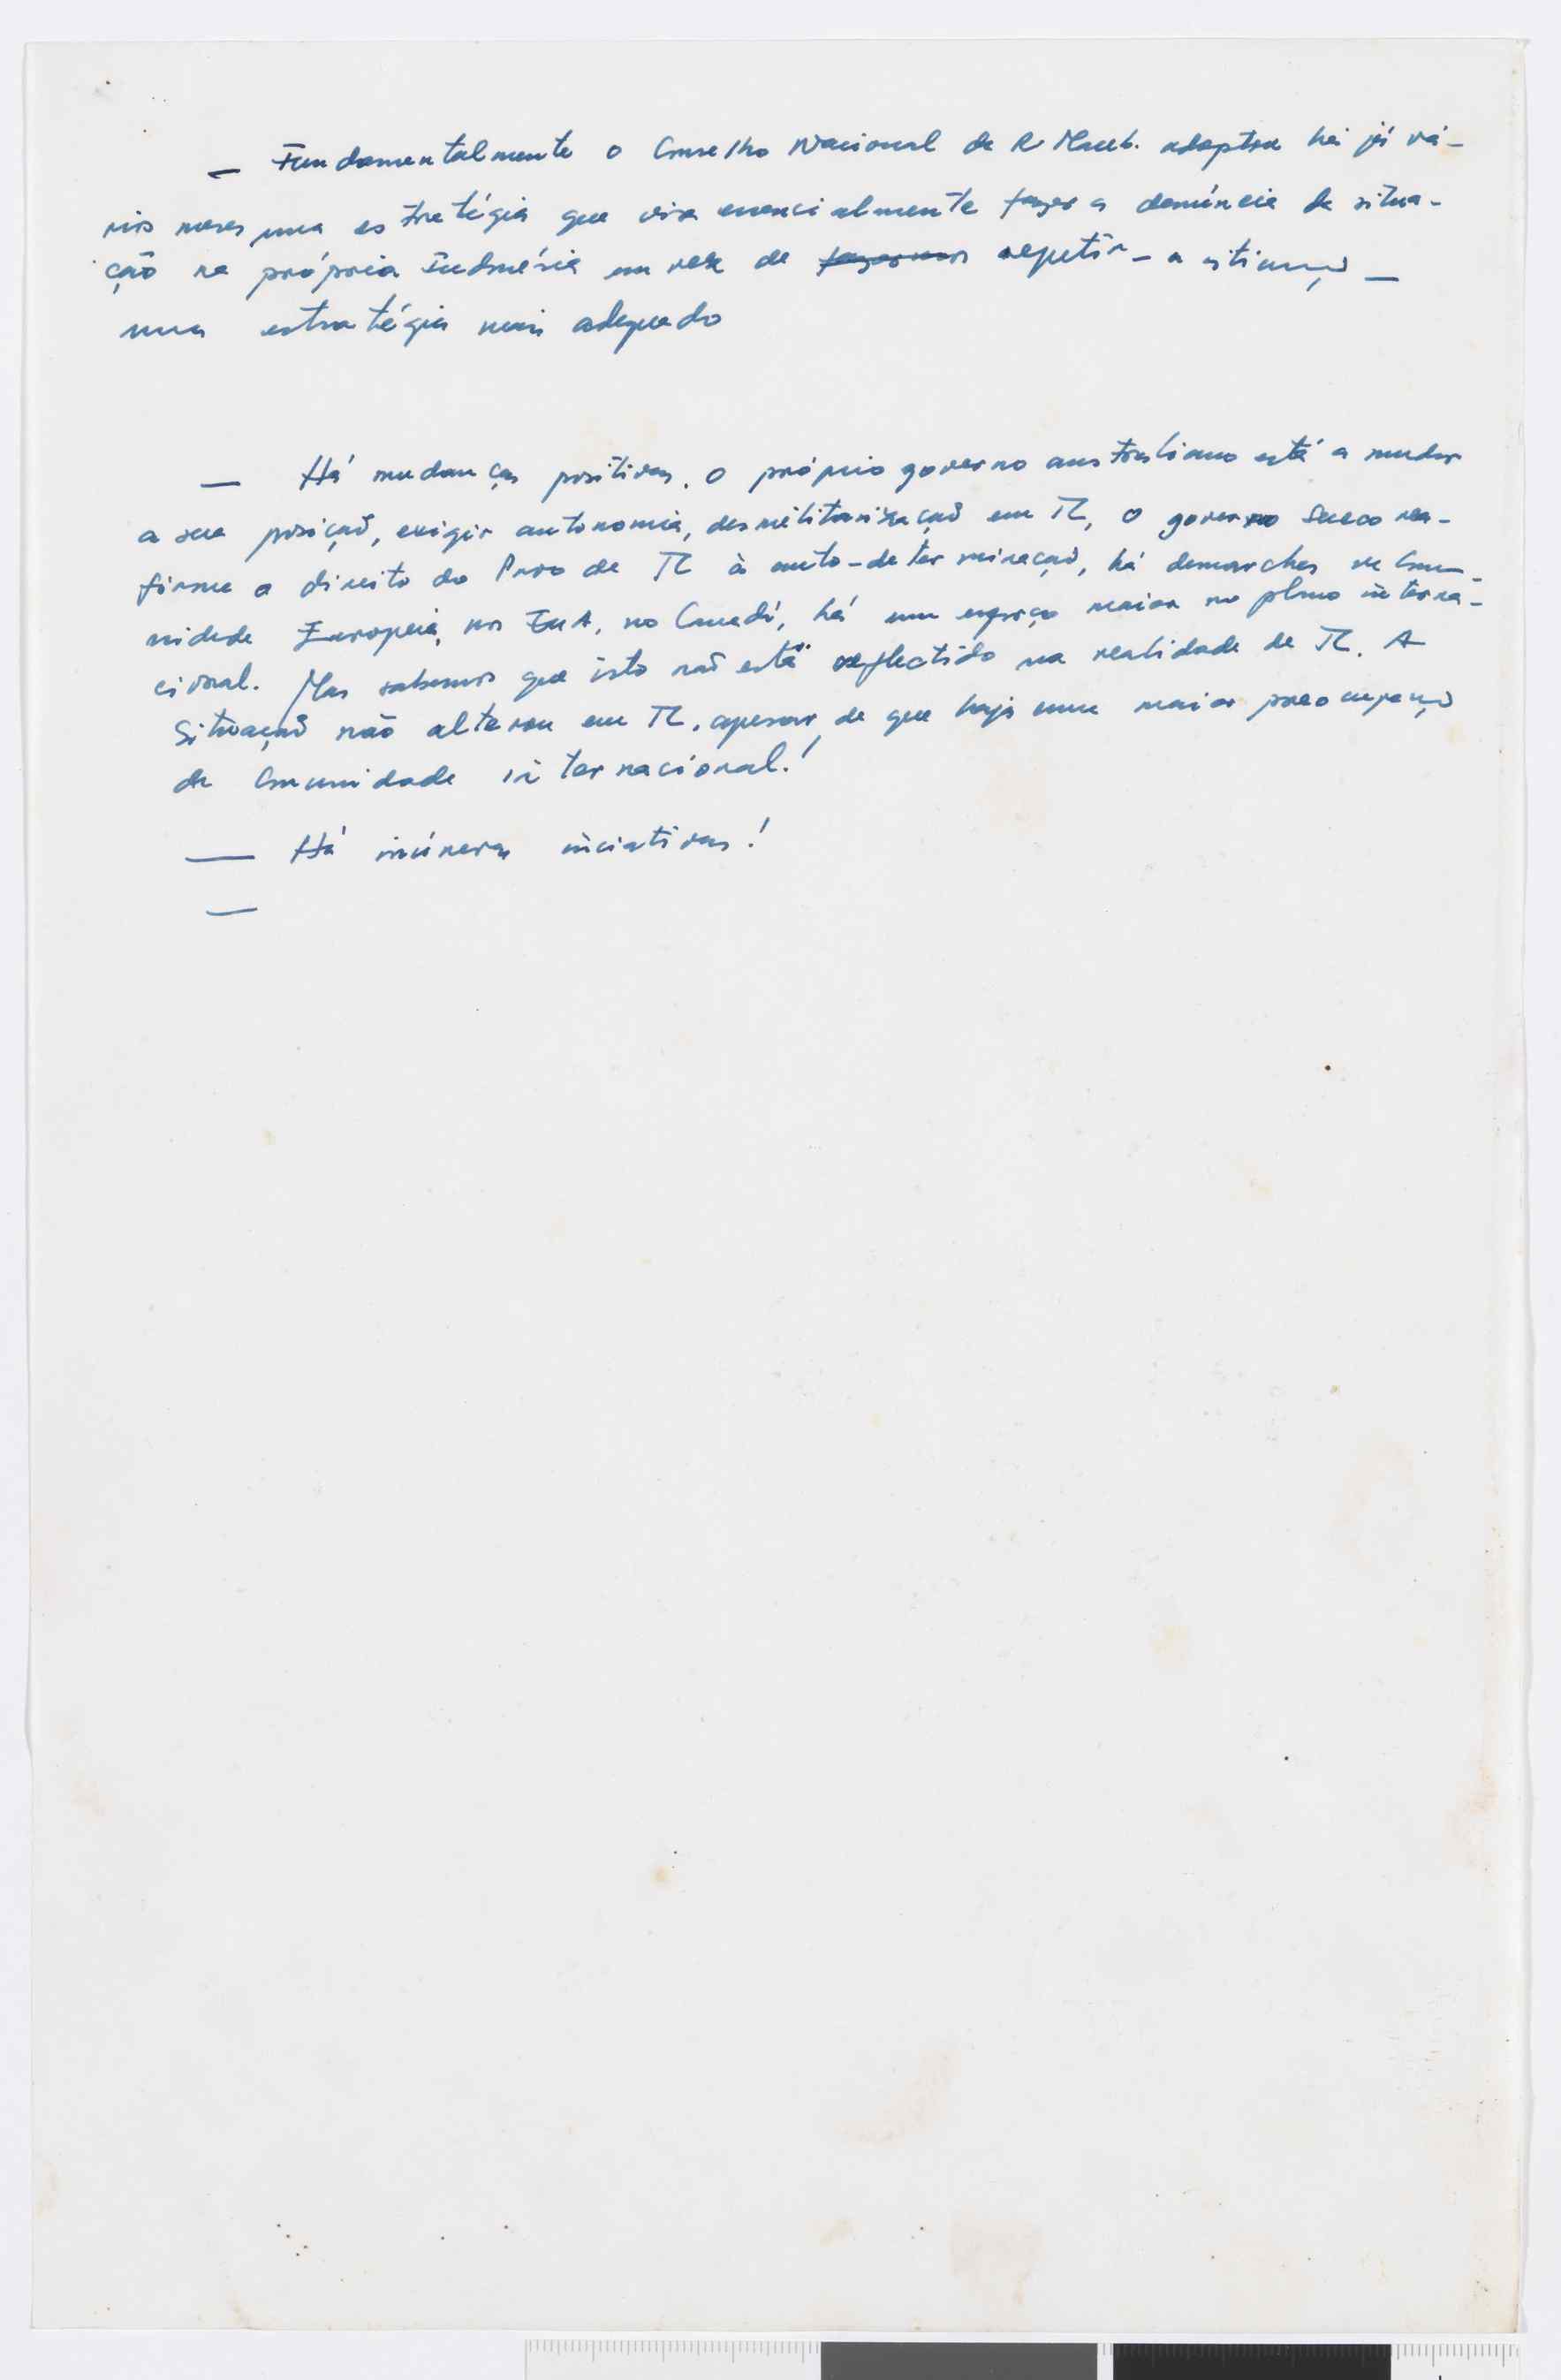 — Fundamentalmente o Conselho Nacional da R Maub. adoptou há já vá-
rios meses uma estratégia que visa essencialmente fazer a denúncia da situa-
ção na própria Indonésia em vez de fazermos repetir-
uma estratégia mais adequado
— Há mudanças positivas. O próprio governo australiano está a mudar
a sua posição, exigir autonomia, desmilitarização em TL, o governo Sueco rea-
firma o direito do Povo de TL à auto-determinação, há demarches na Comu-
nidade Europeia, nos EUA, no Canadá, há um esforço maior no plano interna-
cional. Mas sabemos que isto não está reflectido na realidade de TL. A
Situação não alterou em TL, apesar de que haja uma maior preocupação
da Comunidade internacional!
— Há inúmeras iniciativas!
—